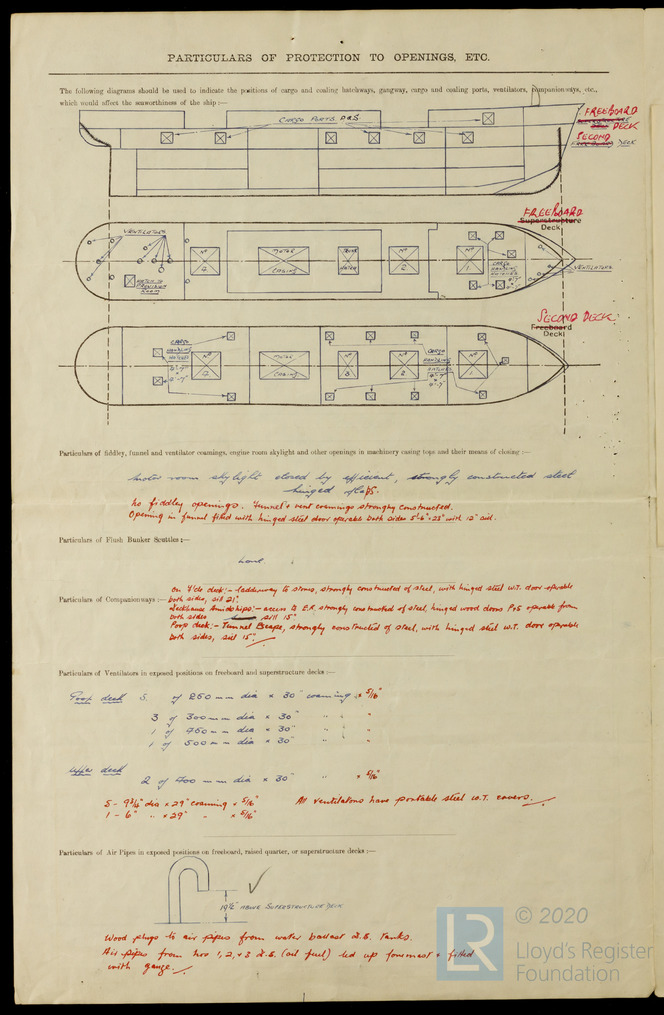 PARTICULARS OF PROTECTION TO OPENINGS, ETC.
The following diagrams should be used to indicate the positions of cargo and coaling hatchways, gangway, cargo and coaling ports, ventilators, companionways, etc.,
which would affect the seaworthiness of the ship:—
CARGO PORTS P&S
FREEBOARD
DECK
SECOND
Freeboard DECK
FREEBOARD
Superstructure
Deck
VENTILATORS
HATCH TO
ROOM
No 4
MOTOR
CASING
HATCH
No 2
No 1
CARGO
HANDLING
HATCHES
VENTILATORS
SECOND DECK.
Freeboard
Deck
CARGO
HANDLING
HATCHES
No 4
MOTOR
CASING
No 3
No 2
CARGO
HANDLING
HATCHES
No 1
Particulars of fiddley, funnel and ventilator coamings, engine room skylight and other openings in machinery casing tops and their means of closing :—
Motor room skylight closed by efficient, strongly constructed steel
hinged flaps.
No fiddley openings. Funnel & vent coamings strongly constructed.
Opening in funnel fitted with hinged steel door operable both sides 5'-6" x 23" with 12" sill.
Particulars of Flush Bunker Scuttles :—
None.
On F'cle deck:- ladderway to stores, strongly constructed of steel, with hinged steel W.T. door operable
Particulars of Companionways :— both sides, sill 21".
Deckhouse Amidships:- access to E.R. strongly constructed of steel, hinged wood doors P&S operable from
both sides sill 15"
Poop deck:- Tunnel Escape, strongly constructed of steel, with hinged steel W.T. door operable
both sides, sill 15".
Particulars of Ventilators in exposed positions on freeboard and superstructure decks :—
Poop deck 5 of 250 mm dia x 30" coaming x 5/16"
3 of 300 mm dia x 30" " "
1 of 450 mm dia x 30" " "
1 of 500 mm dia x 30" " "
Upper deck
2 of 400 mm dia x 30" " x 5/16"
5 - 9 3/4" dia x 29" coaming x 5/16" All ventilators have portable steel W.T. covers.
1 - 6" " x 29" " x 5/16"
Particulars of Air Pipes in exposed positions on freeboard, raised quarter, or superstructure decks :—
19½" ABOVE SUPERSTRUCTURE DECK
Wood plugs to air pipes from water ballast D.B. Tanks.
Air pipes from Nos 1, 2, & 3 D.B. (oil fuel) led up foremast & fitted
with gauze.
LR
© 2020
Lloyd's Register
Foundation